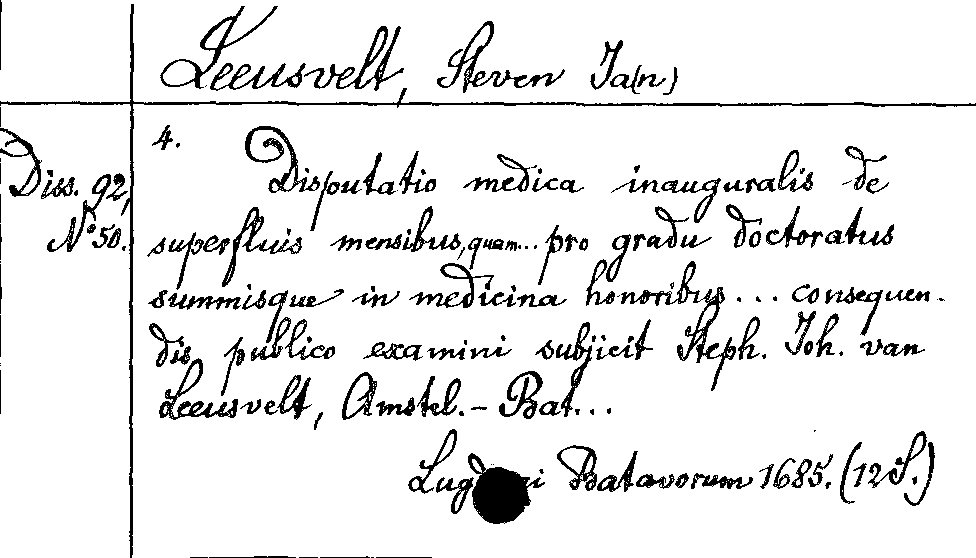 Leeusvelt, Steven Ja(n)
4.
Diss. 92,
N° 50.
Disputatio medica inauguralis de
superfluis mensibus, quam... pro gradu doctoratus
summisque in medicina honoribus... consequen-
dis publico examini subjicit Steph. Joh. van
Leeusvelt, Amstel.-Bat...
Batavorum 1685. (12 S.)